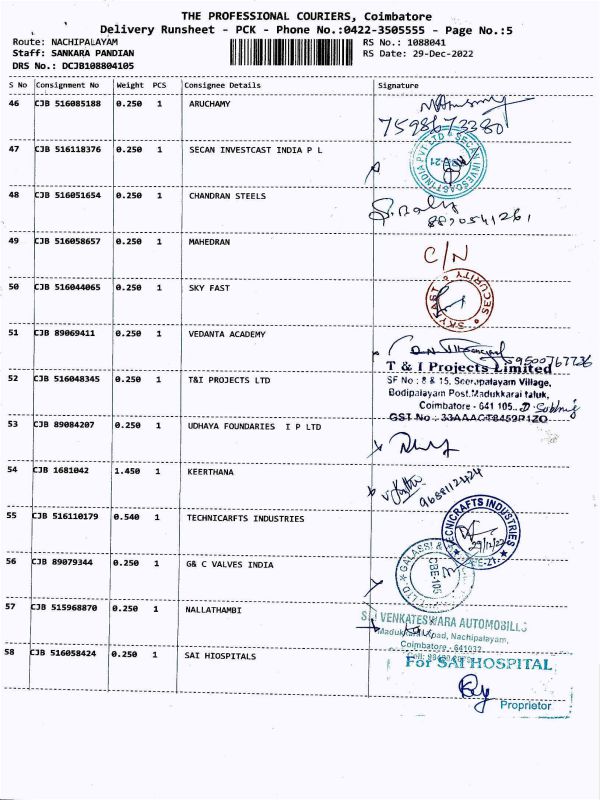 THE PROFESSIONAL COURIERS, Coimbatore
Delivery Runsheet - PCK - Phone No.:0422-3505555 - Page No.:5
Route: NACHIPALAYAM RS No.: 1088041
Staff: SANKARA PANDIAN RS Date: 29-Dec-2022
DRS No.: DCJB108804105
S No Consignment No Weight PCS Consignee Details Signature
46 CJB 516085188 0.250 1 ARUCHAMY
7598673380
47 CJB 516118376 0.250 1 SECAN INVESTCAST INDIA P L
SECAN INVESCAST INDIA PVT LTD
48 CJB 516051654 0.250 1 CHANDRAN STEELS
8870541261
49 CJB 516058657 0.250 1 MAHEDRAN C/N
50 CJB 516044065 0.250 1 SKY FAST
SECURITY
51 CJB 89069411 0.250 1 VEDANTA ACADEMY
9500767736
T & I Projects Limited
52 CJB 516048345 0.250 1 T&I PROJECTS LTD
SF No : 8 & 15, Seerapalayam Village,
Bodipalayam Post.Madukkarai taluk,
Coimbatore - 641 105.
53 CJB 89084207 0.250 1 UDHAYA FOUNDARIES I P LTD
54 CJB 1681042 1.450 1 KEERTHANA
9688112424
55 CJB 516110179 0.540 1 TECHNICARFTS INDUSTRIES
TECNICRAFTS INDUSTRIES
29/12/22
56 CJB 89079344 0.250 1 G& C VALVES INDIA
CBE-105
57 CJB 515968870 0.250 1 NALLATHAMBI
VENKATESWARA AUTOMOBILES
Nachipalayam,
Coimbatore - 641032
58 CJB 516058424 0.250 1 SAI HIOSPITALS
For SAI HOSPITAL
Proprietor